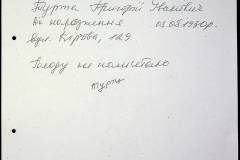 Турта Григорій Іванович
дн народження 08.08.1980р.
вул. Кірова, 129
Голоду не пам'ятаю